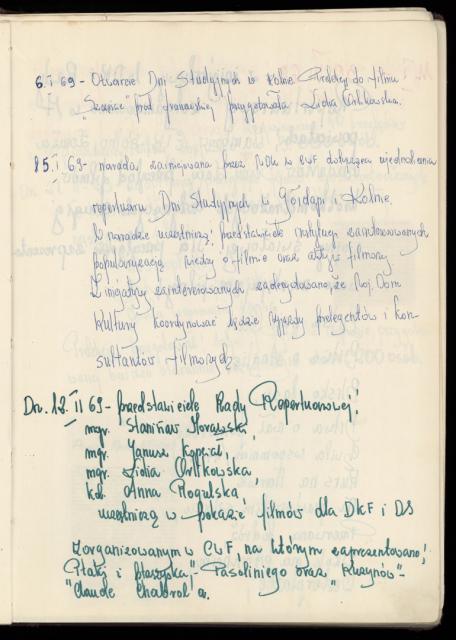 6. I 69 - Otwarcie Dni Studyjnych w Kolnie Prelekcję do filmu
"Szańce" prod. jranskiej przygotowała Lidia Orlikowska.
15. I 69 - narada zainicjowana przez WDK w CWF dotycząca ujednolicenia
repertuaru Dni Studyjnych w Gołdapi i Kolnie.
W naradzie uczestniczą przedstawiciele instytucji zainteresowanych
popularyzacją wiedzy o filmie oraz sztuki filmowej
Z inicjatywy zainteresowanych zadecydowano, że Woj. Dom
Kultury koordynować będzie wyjazdy prelegentów i kon-
sultantów filmowych
Dn. 12. II 69 - przedstawiciele Rady Repertuarowej:
mgr. Stanisław
mgr. Janusz
mgr. Lidia Orlikowska
kol. Anna Rogulska
uczestniczą w pokazie filmów dla DKF i DS
zorganizowanym w CWF, na którym zaprezentowano:
"Ptaki i ptaszyska" - Pasoliniego oraz "Kuzynów" -
"Claude Chabrol'a.